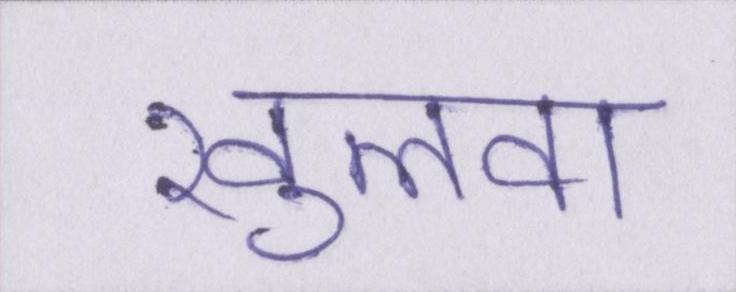 खुलवा